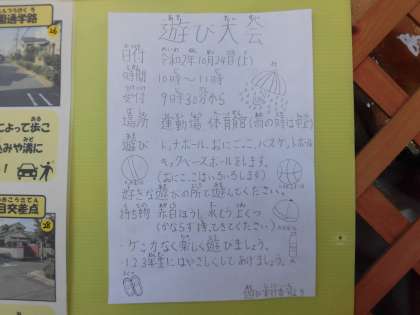 遊び大会
日付 令和2年10月24日(土)
時間 10時〜11時
受付 9時30分から
場所 運動場 体育館(雨の時は中止)
遊び ドッチボール、おにごっこ、バスケットボール
キックベースボールをします。
(おにごっこはいろいろします)
好きな遊びの所で遊んでください。
持ち物 赤白ぼうし
(かならず持ってきてください)
・ケンカなく楽しく遊びましょう。
・1.2.3年生にはやさしくしてあげましょう。
通学路
26
によって歩こ
みや溝に
目交差点
28